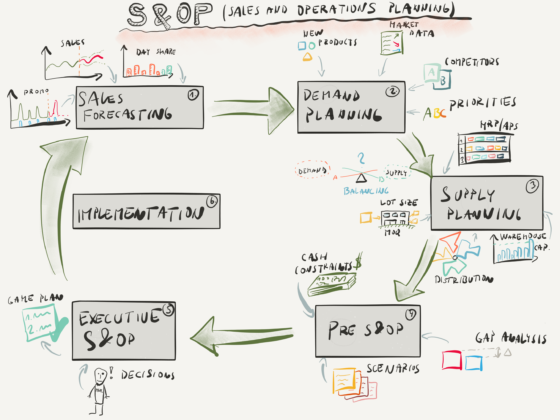 S&OP (SALES AND OPERATIONS PLANNING)
SALES
DAY SHARE
PROMO
SALES FORECASTING 1
NEW PRODUCTS
MARKET DATA
COMPETITORS
A
B
PRIORITIES
ABC
DEMAND PLANNING 2
MRP/APS
DEMAND
SUPPLY
2
BALANCING
LOT SIZE
MOQ
SUPPLY PLANNING 3
WAREHOUSE CAP.
DISTRIBUTION
?
IMPLEMENTATION 6
CASH CONSTRAINTS $
PRE S&OP 4
GAP ANALYSIS
Δ
SCENARIOS
EXECUTIVE S&OP 5
GAME PLAN
1
2
! DECISIONS